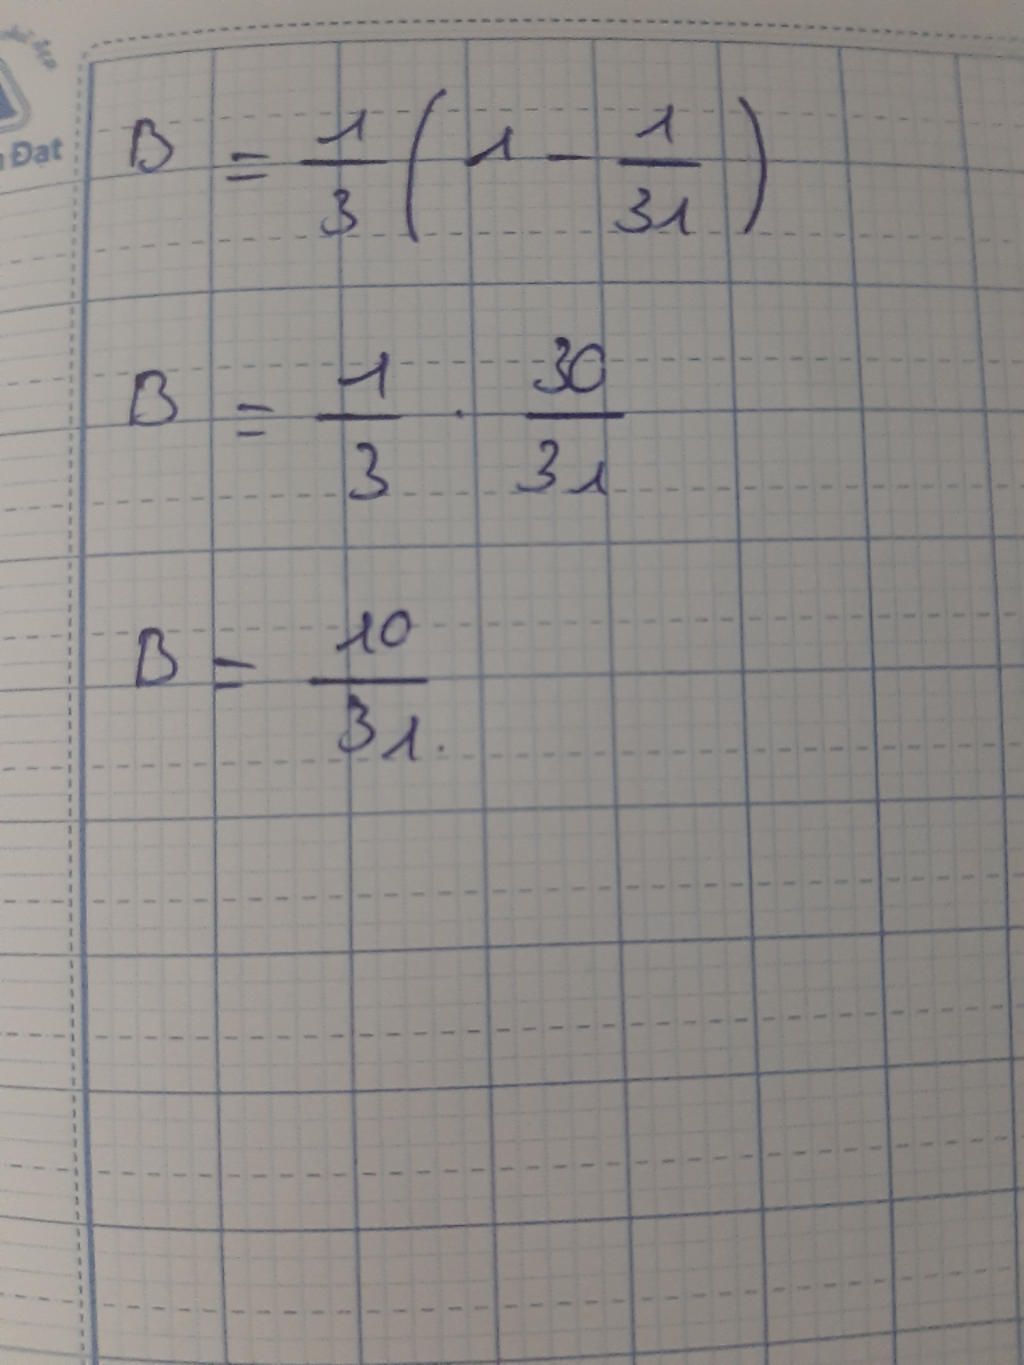 Đạt
B = \frac{1}{3} ( 1 - \frac{1}{31} )
B = \frac{1}{3} . \frac{30}{31}
B = \frac{10}{31}.